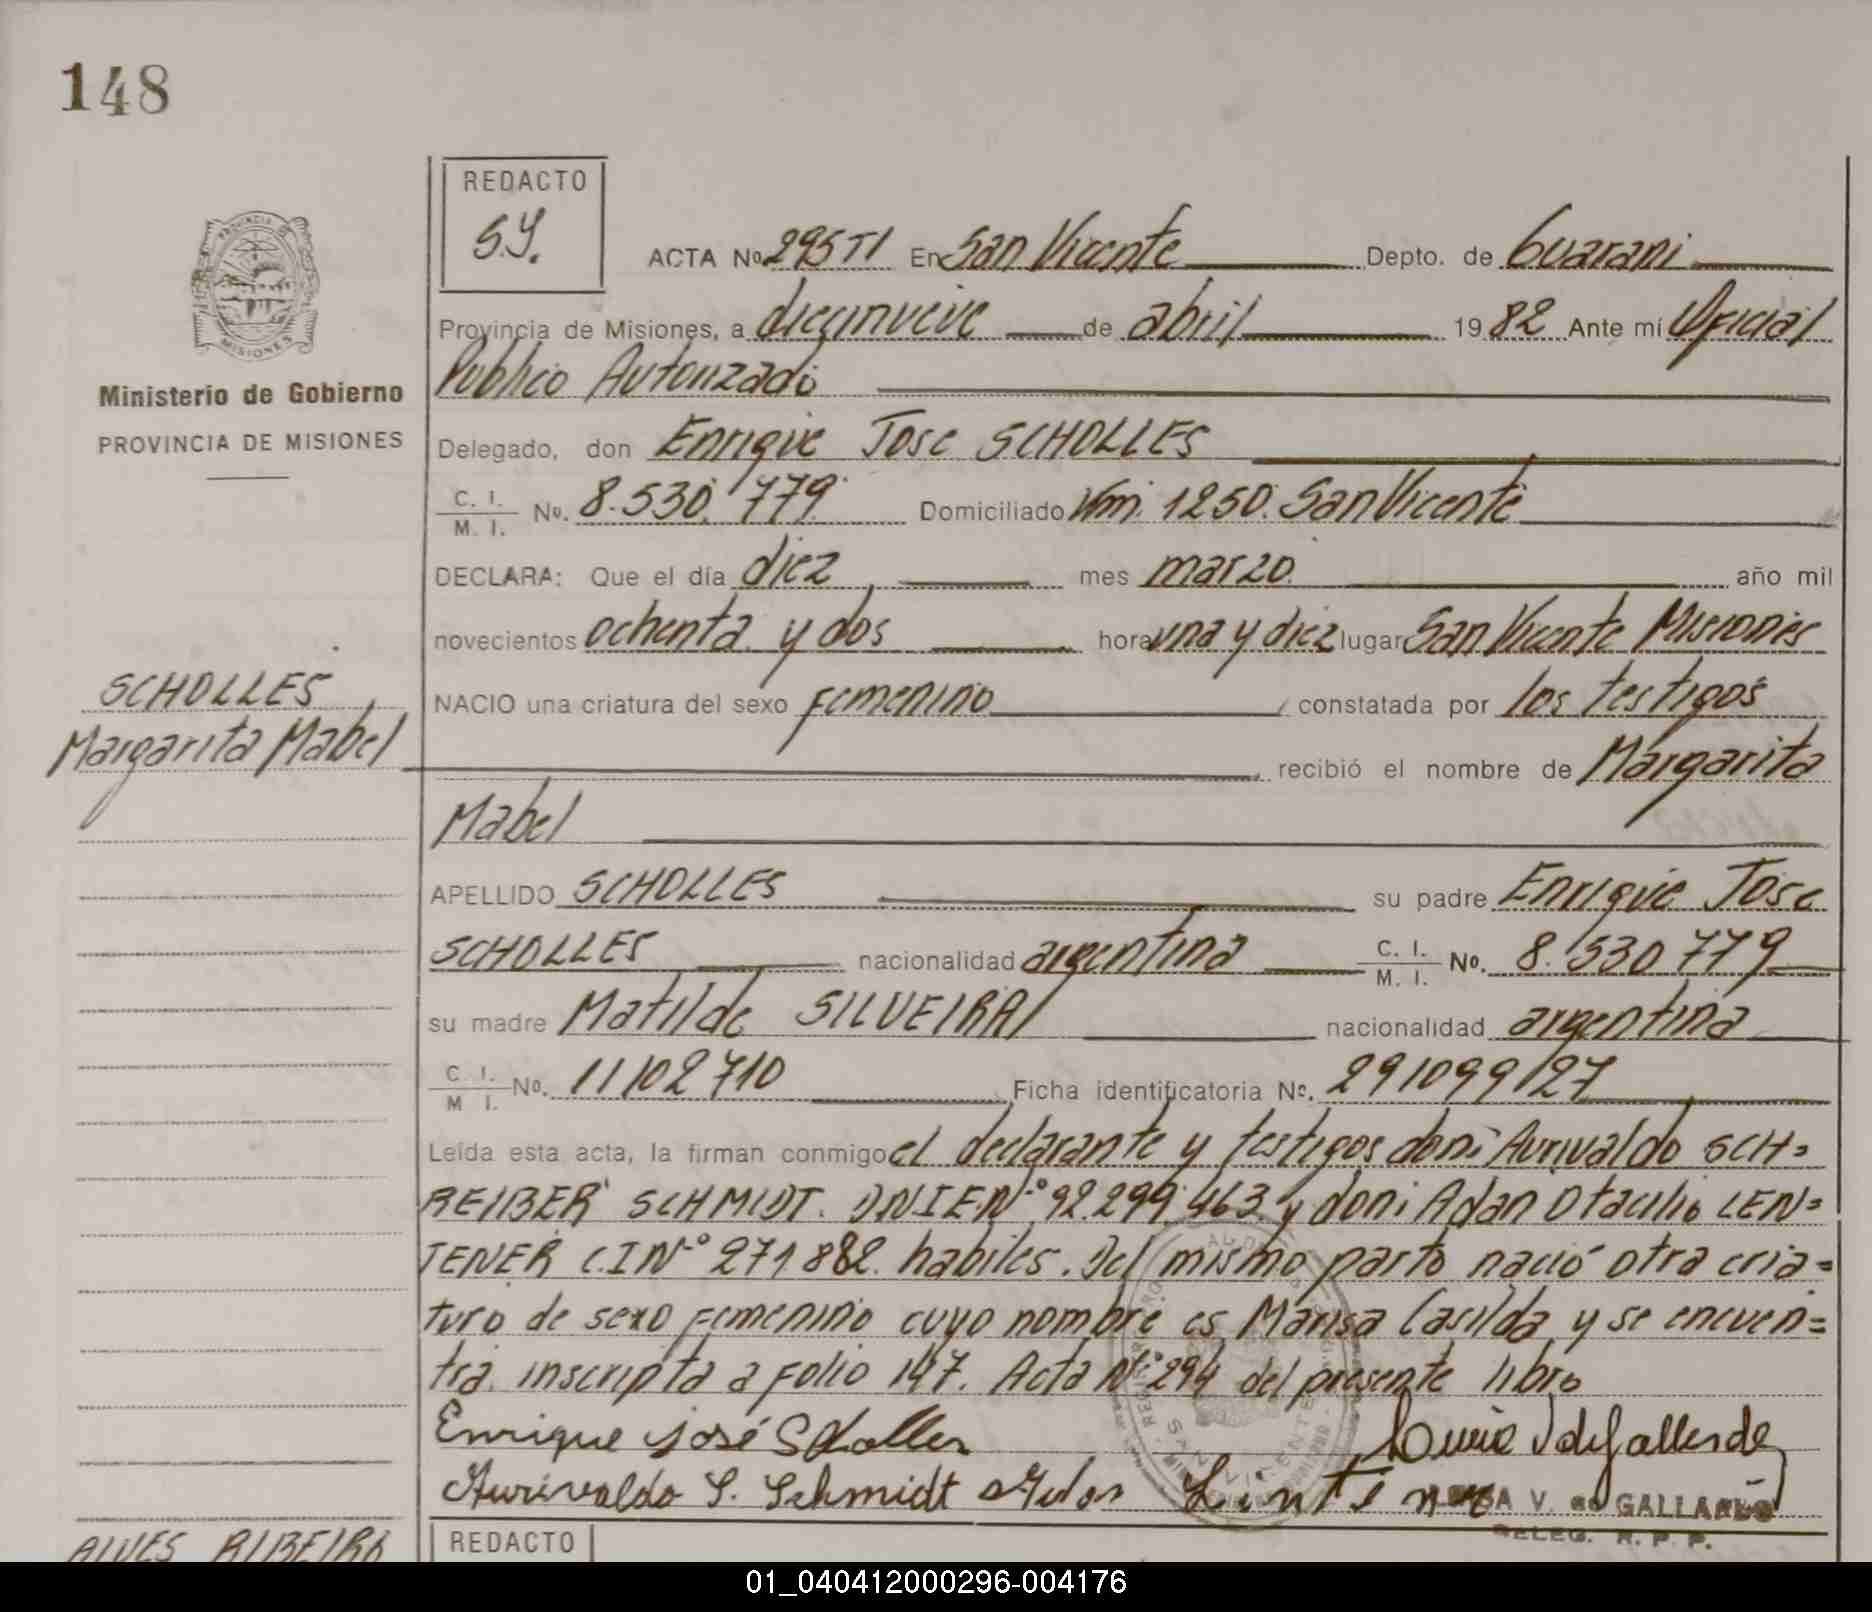 148
REDACTO
S.Y.
PROVINCIA DE
MISIONES
Ministerio de Gobierno
PROVINCIA DE MISIONES
ACTA No 295 T1 En San Vicente Depto. de Guarani
Provincia de Misiones, a diecinueve de abril 19 82 Ante mí Oficial
Publico Autorizado
Delegado, don Enrique Jose SCHOLLES
C. I. / M. I. No. 8.530.779 Domiciliado Km. 1250. San Vicente
DECLARA: Que el día diez mes marzo. año mil
novecientos ochenta y dos hora una y diez lugar San Vicente Misiones
SCHOLLES
Margarita Mabel
NACIO una criatura del sexo femenino constatada por los testigos
recibió el nombre de Margarita
Mabel
APELLIDO SCHOLLES su padre Enrique Jose
SCHOLLES nacionalidad argentina C. I. / M. I. No. 8.530 779
su madre Matilde SILVEIRA nacionalidad argentina
C I. / M I. No. 11102710 Ficha identificatoria No. 291099/27
Leída esta acta, la firman conmigo el declarante y testigos don: Aurivaldo SCH=
REIBER SCHMIDT. DNIE N.º 92.299.463 y don: Adan Otacilio LEN=
TENER C.I N.º 271882. habiles. Del mismo parto nació otra cria=
tura de sexo femenino cuyo nombre es Marisa Casilda y se encuen=
tra. inscripta a folio 147. Acta Nº 294 del presente libro
Enrique José Scholles
Aurivaldo S. Schmidt
V. de GALLARDO
DELEG. R. P. P.
SAN VICENTE
ALVES RIBEIRO
REDACTO
01_040412000296-004176